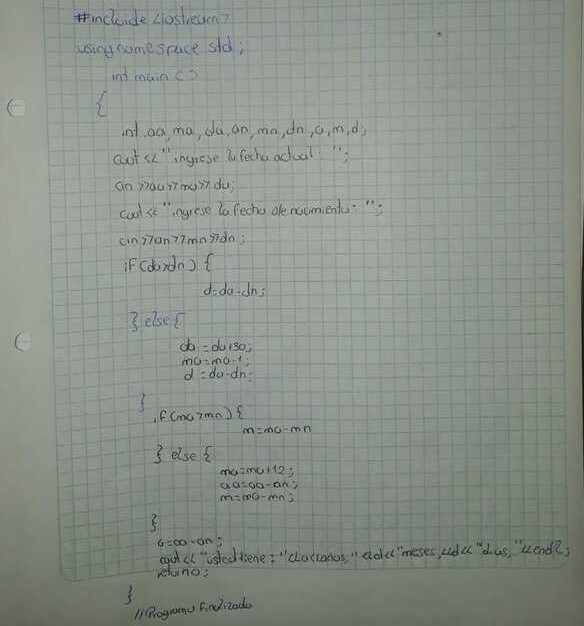 #include <iostream>
using namespace std;
int main ()
{
int aa, ma, da, an, mn, dn, a, m, d;
cout << "ingrese la fecha actual: ";
cin >>aa>>ma>> da;
cout << "ingrese la fecha de nacimiento: ";
cin >>an>>mn>>dn;
if (da>dn) {
d=da-dn;
} else {
da = da+30;
ma=ma-1;
d = da-dn;
}
if (ma>mn) {
m=ma-mn
} else {
ma=ma+12;
aa=aa-an;
m=ma-mn;
}
a=aa-an;
cout << "usted tiene: "<<a<<"años, "<< <<"meses, <<d<< "dias, "<<endl;
return 0;
}
//Programa finalizado